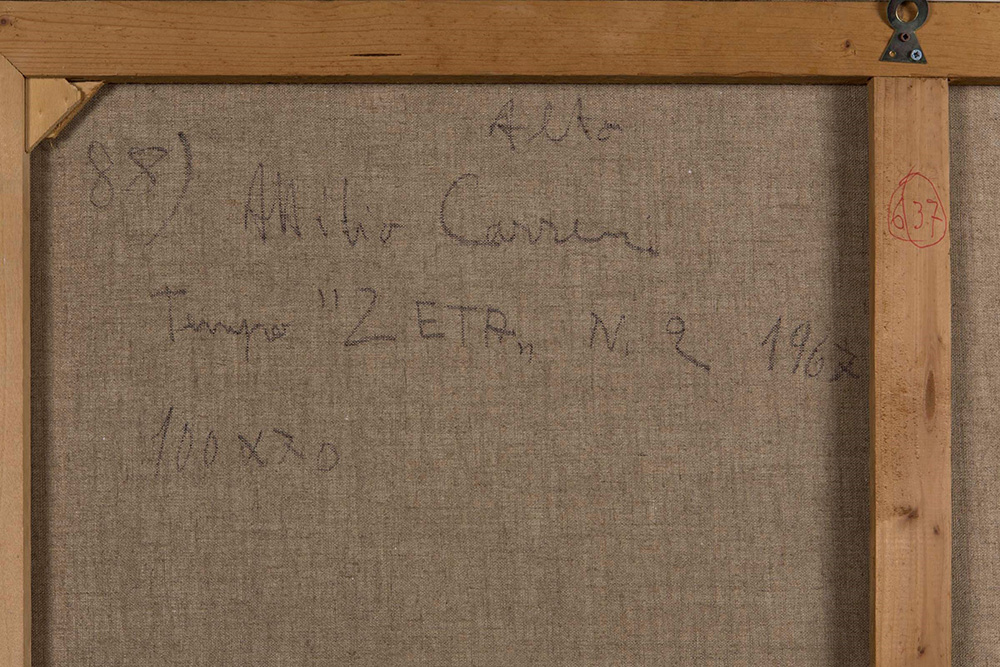 Alto
88)
Attilio Carreri
Tempo "ZETA" N. 2 1967
100x70
637